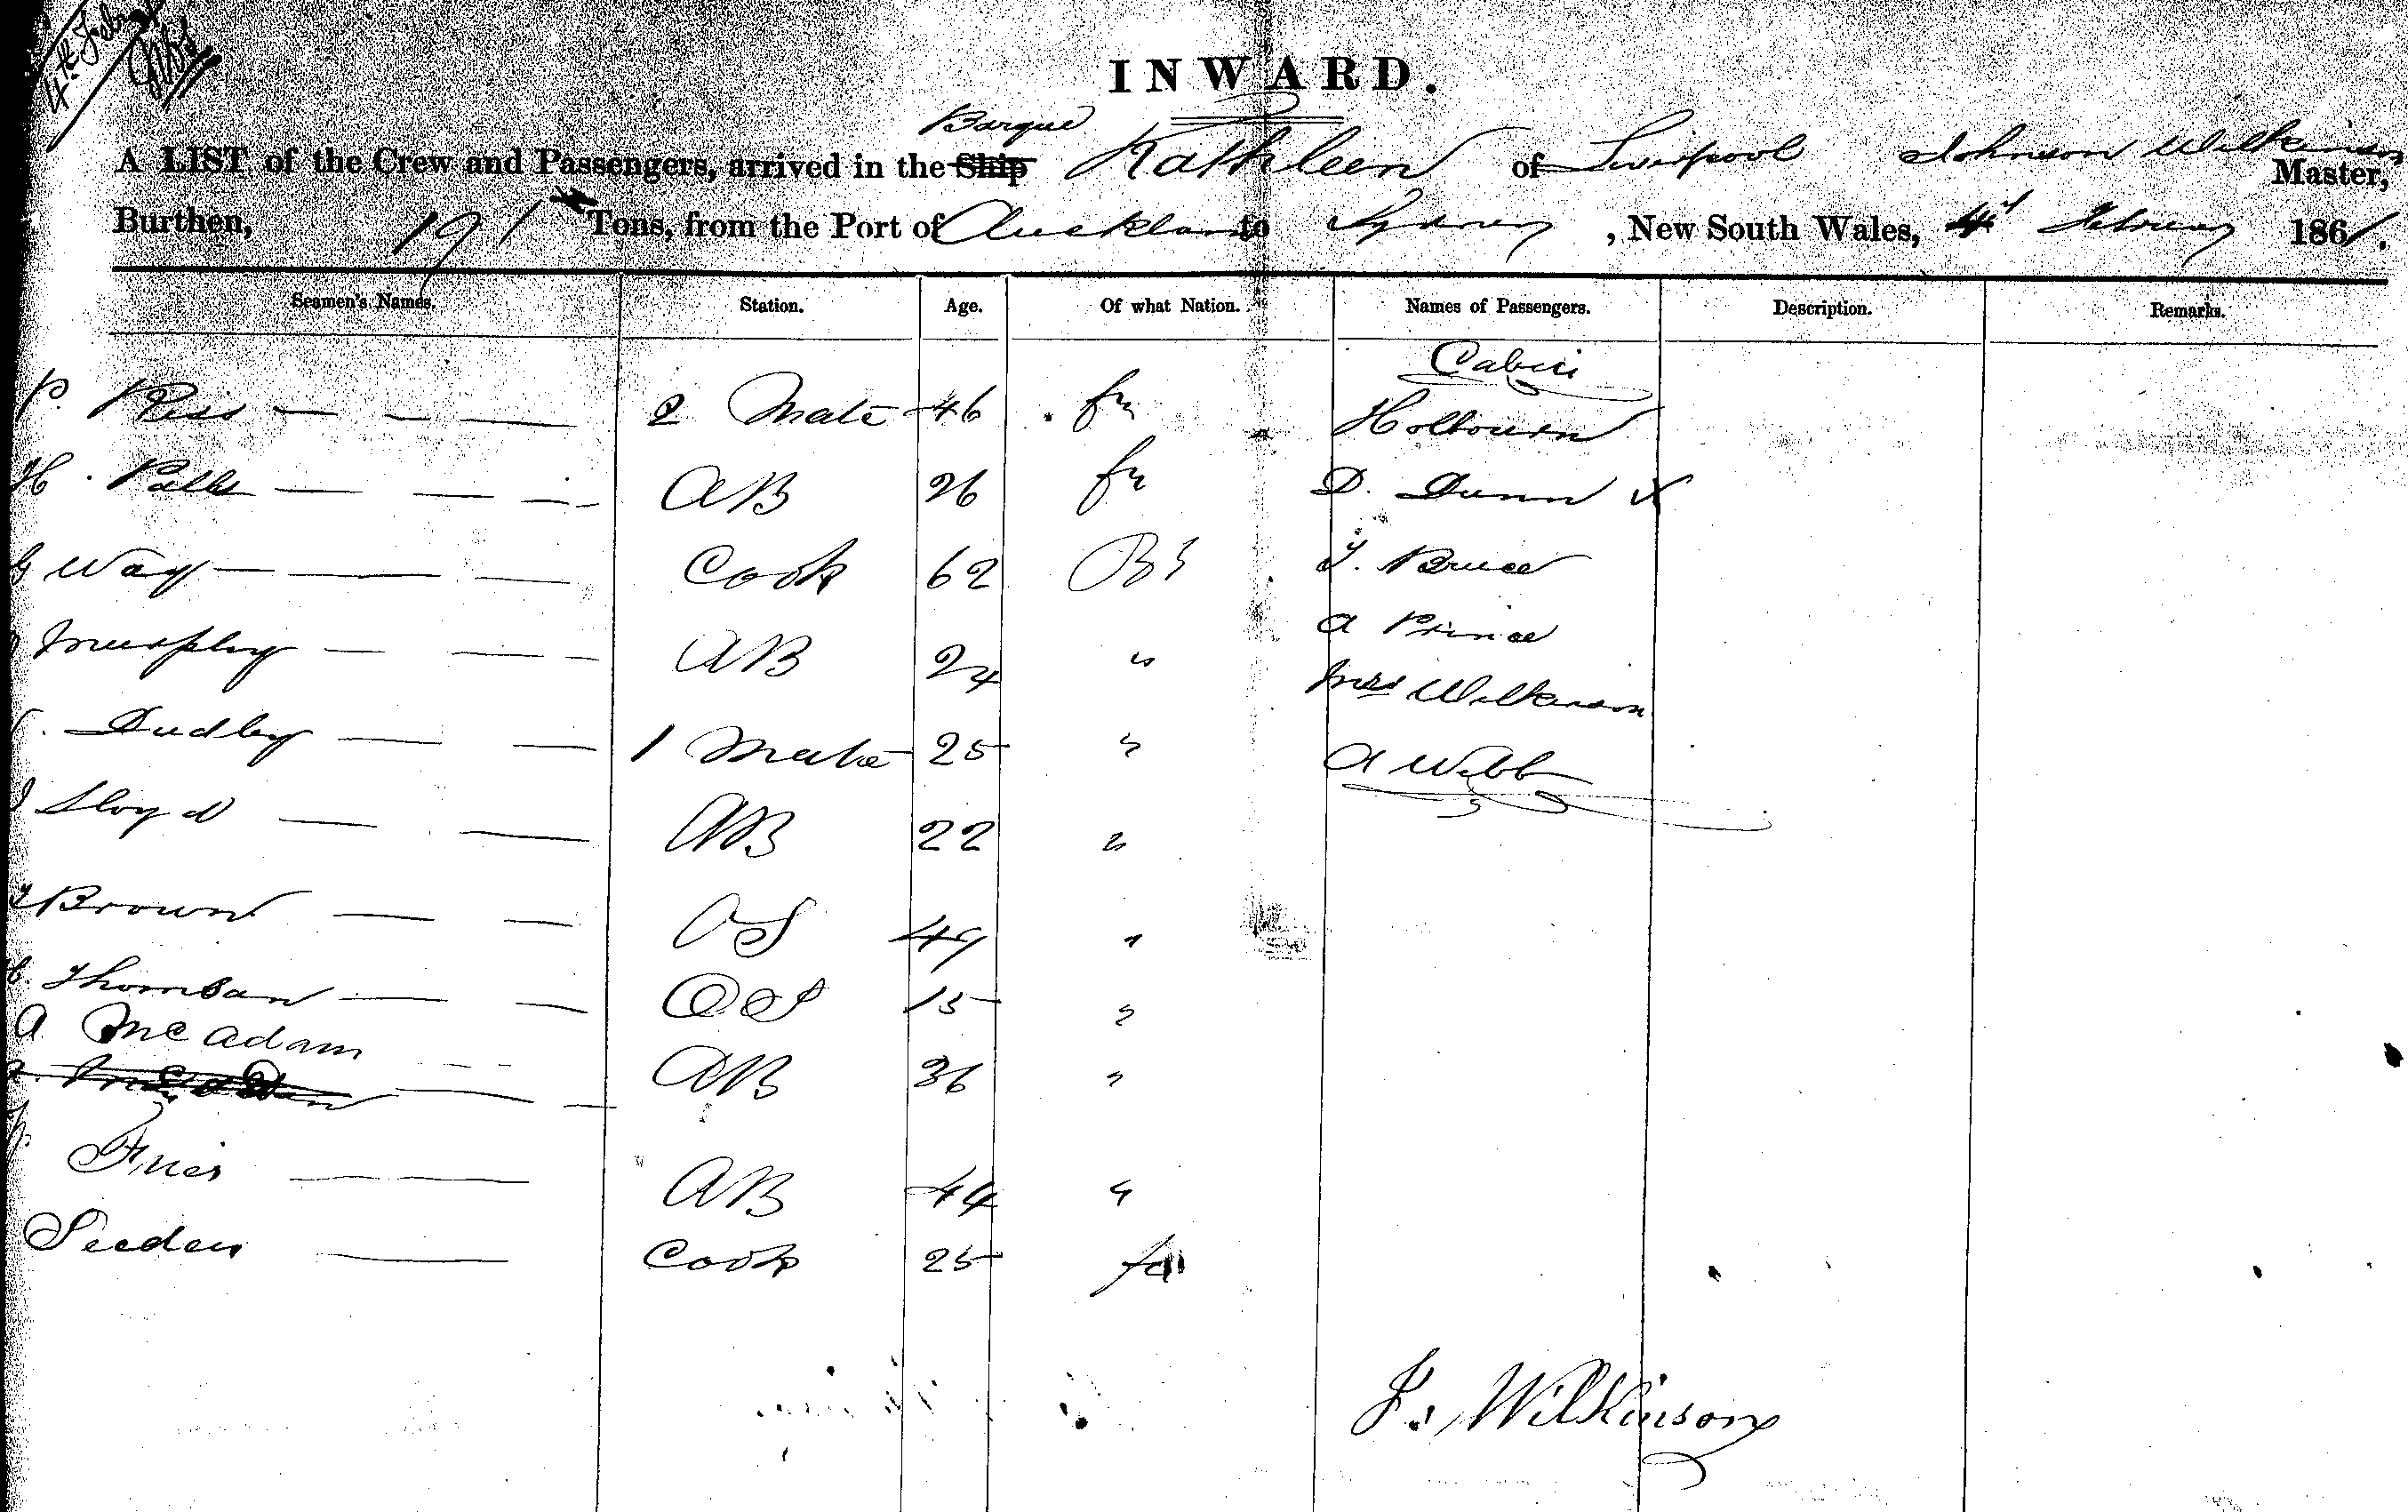 4th Febru
INWARD.
Barque
A LIST of the Crew and Passengers, arrived in the Ship Kathleen of Liverpool Johnson Wilkinson Master,
Burthen, 191 Tons, from the Port of Auckland to Sydney, New South Wales, 4th February 1861.
Seamen's Names. Station. Age. Of what Nation. Names of Passengers. Description. Remarks.
Cabin
P. 2 Mate 46 Holbourn
H. AB 26 D. Dunn X
G Way Cook 62 Bs Bruce
Murphy AB 24 " A Prince
Dudley 1 Mate 25 " Mrs Wilkinson
Lloyd AB 22 " A Webb
Brown OS 49 "
OS 15 "
A McAdam
AB 36 "
AB 44 "
Cook 25
J. Wilkinson